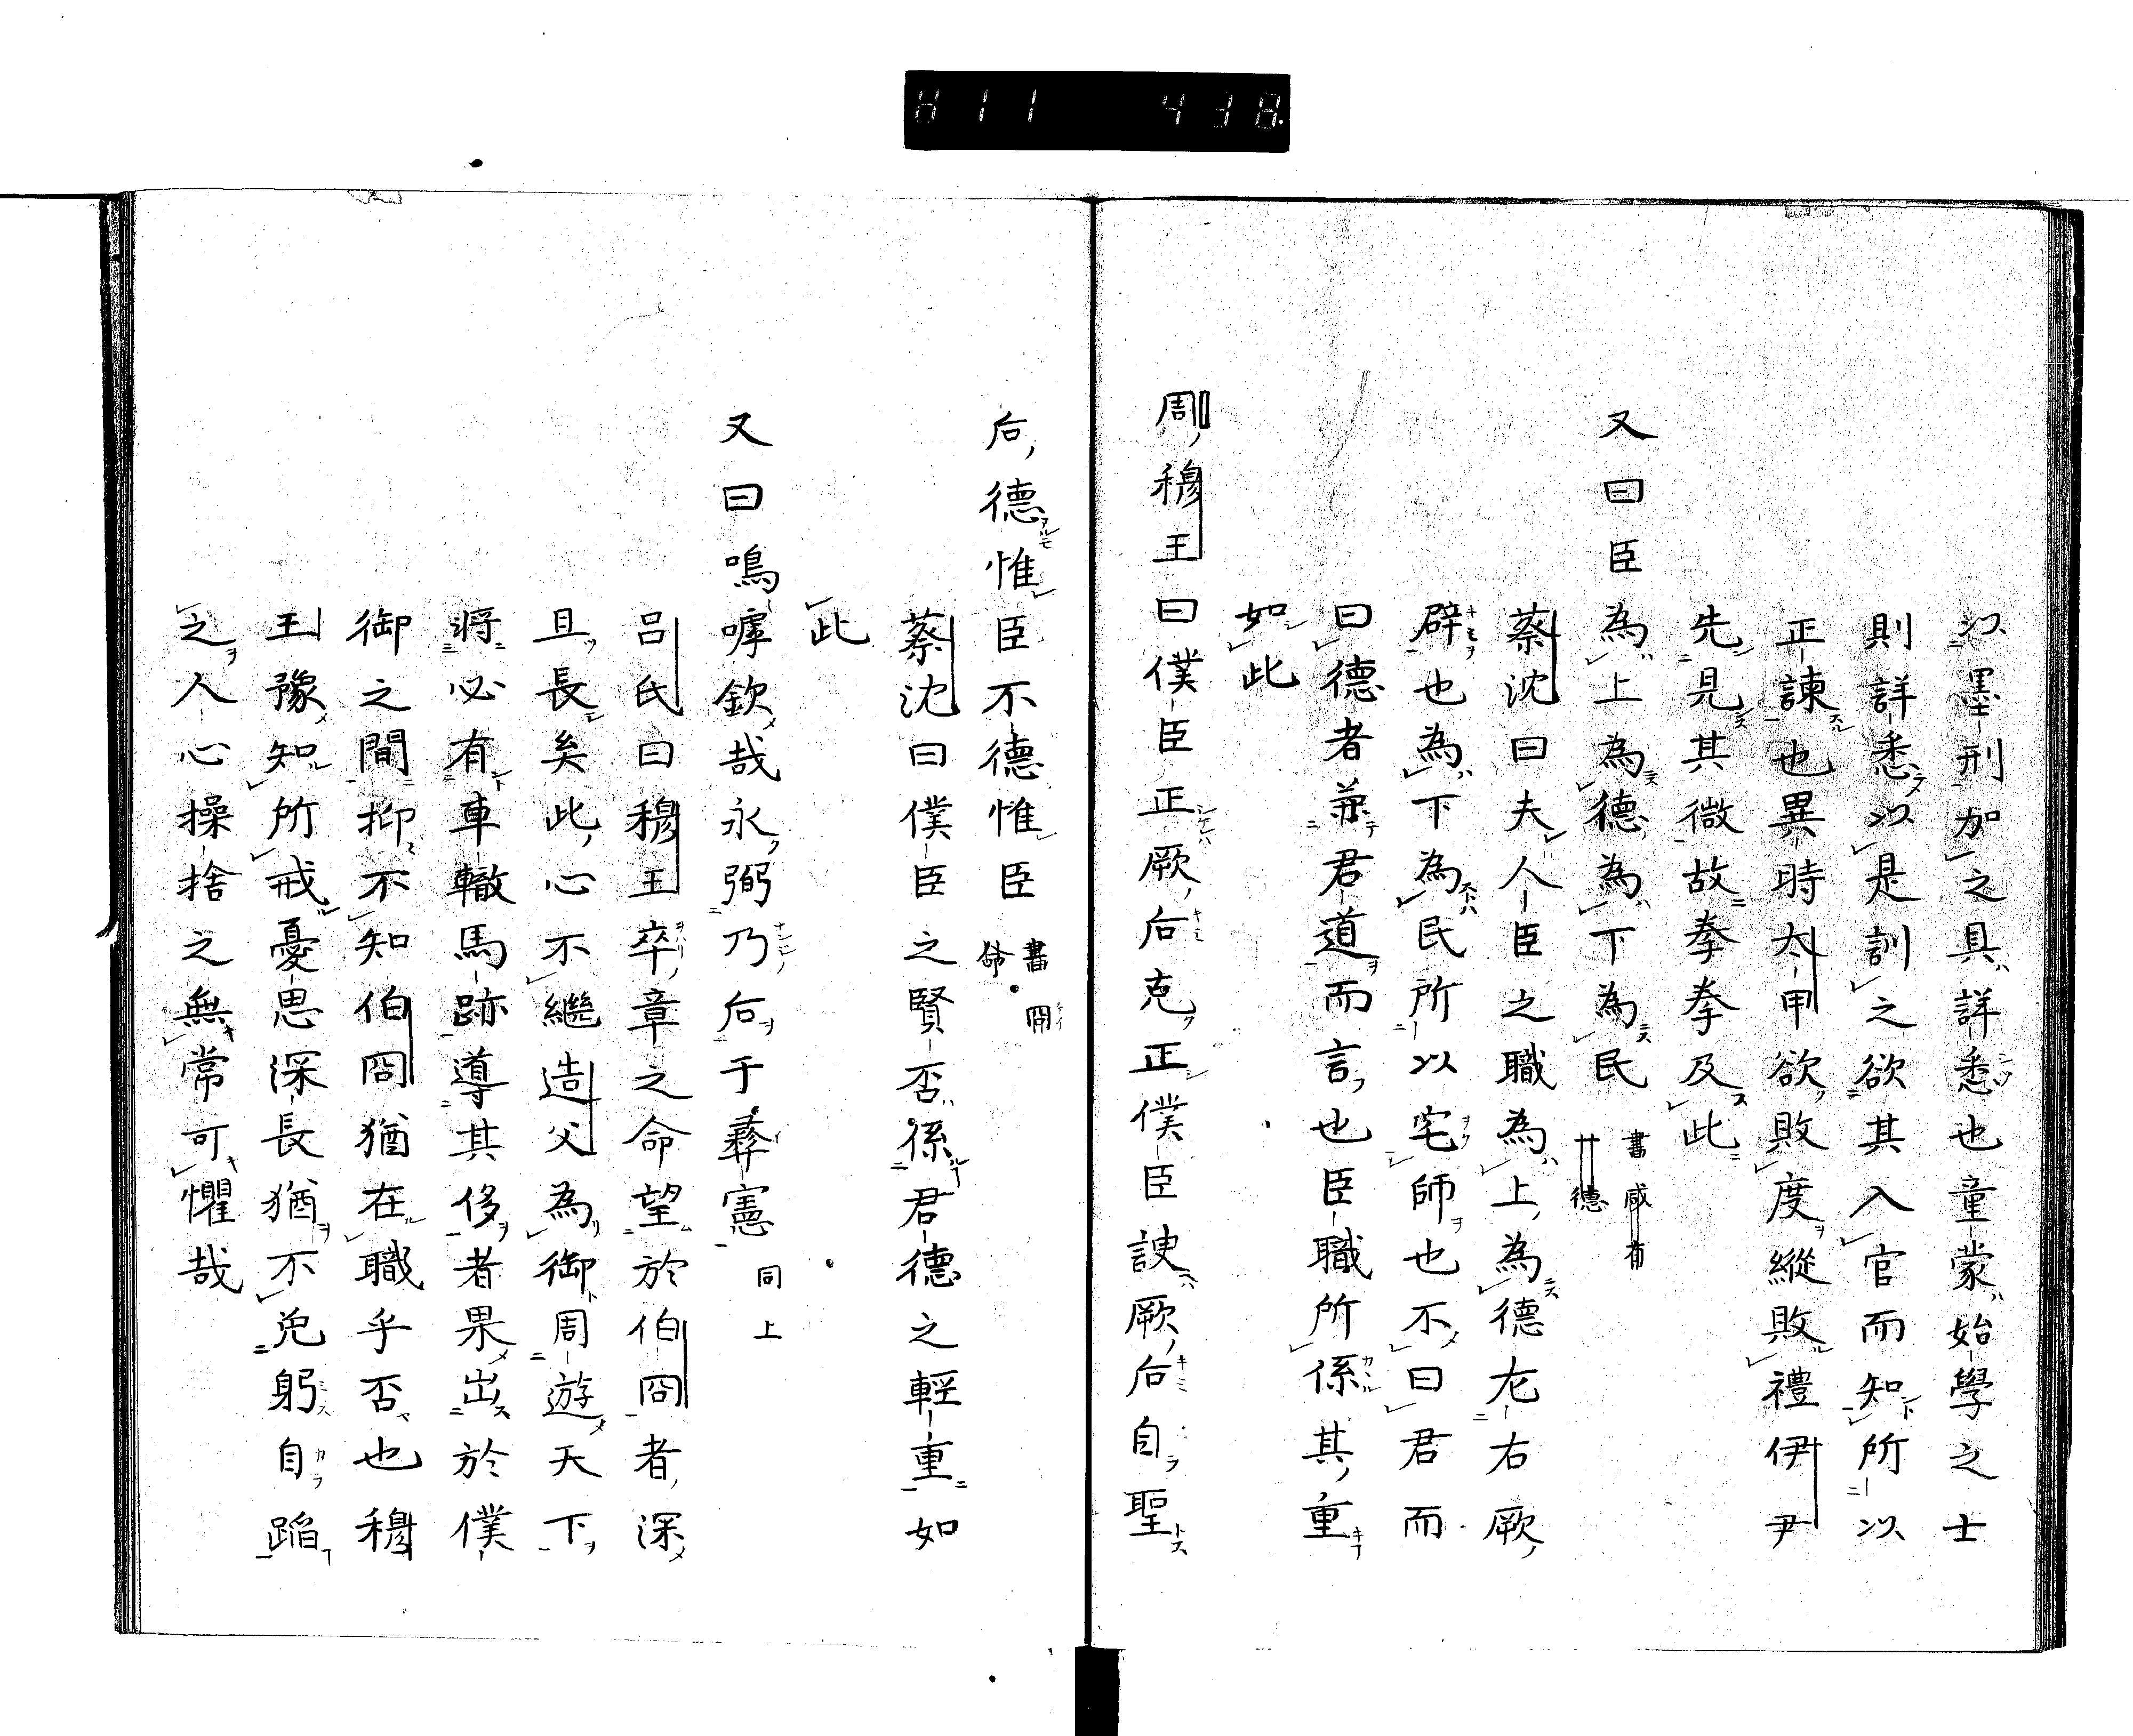 以墨刑加之具詳悉也童蒙始學之士
則詳悉以是訓之欲其入官而知所以
正諫也異時太甲欲敗度縱敗禮伊尹
先見其微故拳拳及此
又曰臣為上為德為下為民 書咸有一德
蔡沈曰夫人臣之職為上為德左右厥
辟也為下為民所以宅師也不曰君而
曰德者兼君道而言也臣職所係其重
如此
周穆王曰僕臣正厥后克正僕臣諛厥后自聖
后德惟臣不德惟臣 書冏命
蔡沈曰僕臣之賢否係君德之輕重如
此
又曰嗚嘑欽哉永弼乃后于彝憲 同上
呂氏曰穆王卒章之命望於伯冏者深
且長矣此心不繼造父為御周遊天下
将必有車轍馬跡導其侈者果出於僕
御之間抑不知伯冏猶在職乎否也穆
王豫知所戒憂思深長猶不免躬自蹈
之人心操捨之無常可懼哉